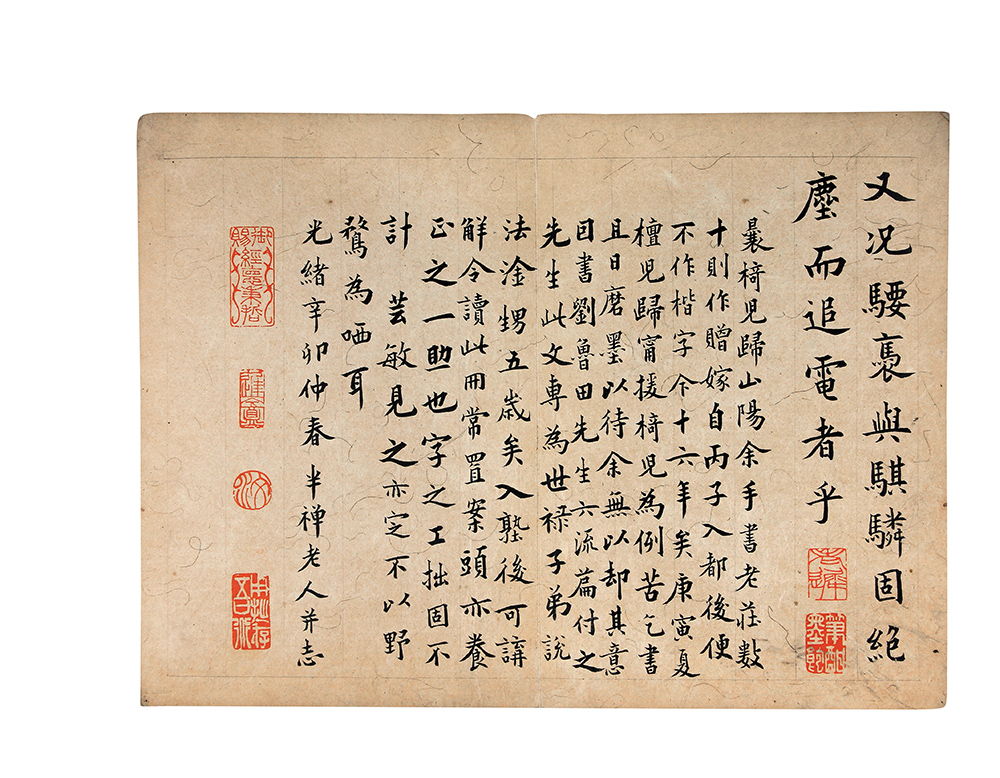 又况騕褭與騏驎固絕
塵而追電者乎
曩椅兒歸山陽余手書老莊數
十則作贈嫁自丙子入都後便
不作楷字今十六年矣庚寅夏
檀兒歸甯援椅兒為例苦乞書
且日磨墨以待余無以却其意
因書劉魯田先生六流篇付之
先生此文專為世祿子弟說
法淦甥五歲矣入塾後可講
解令讀此冊常置案頭亦養
正之一助也字之工拙固不
計芸敏見之亦定不以野
鶩為哂耳
光緒辛卯仲春半禅老人并志